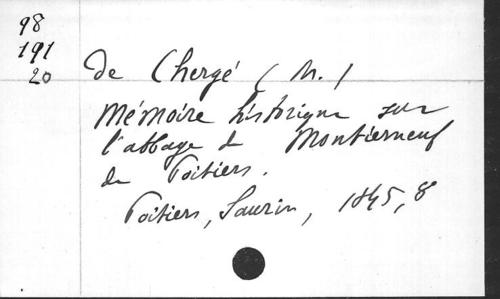 98
191
20
de Chergé (M.)
Mémoire historique sur
l'abbaye de Montierneuf
de Poitiers.
Poitiers, Saurin, 1845, 8